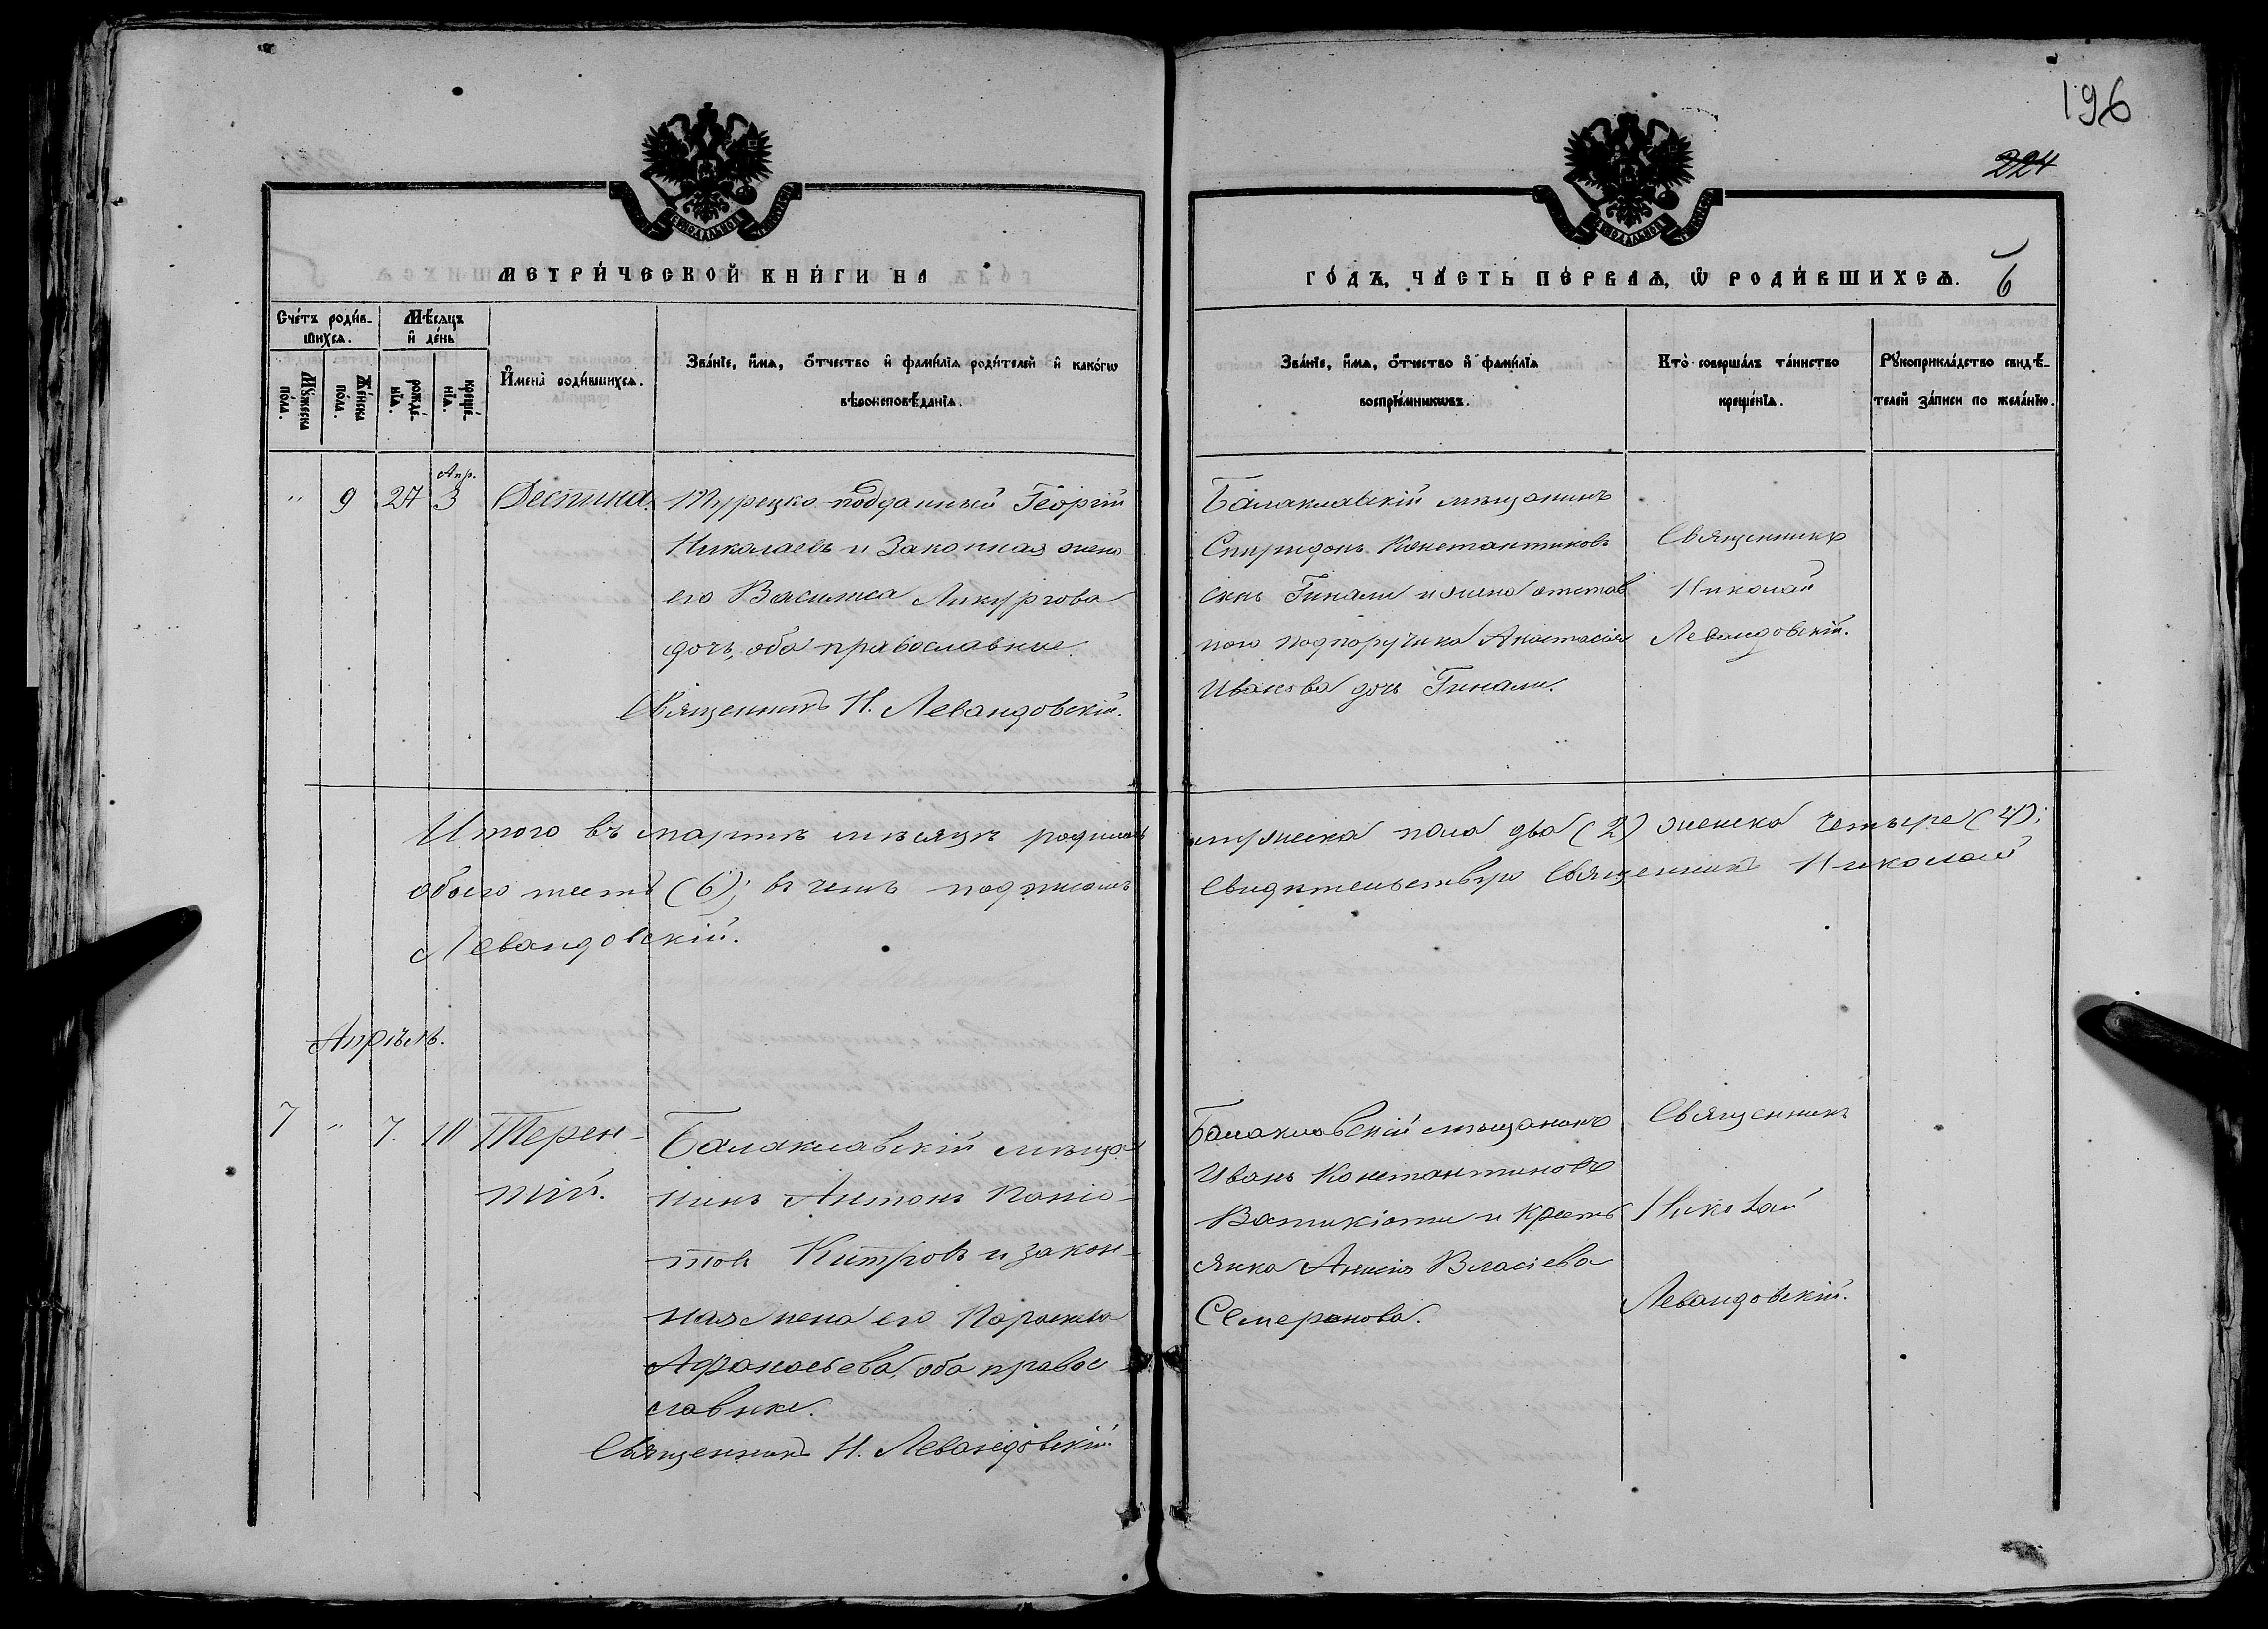 196
224
МЕТРИ́ЧЕСКОЙ КНИ́ГИ НА
ГО́ДЪ, ЧА́СТЬ ПЕ́РВАѦ, Ѡ҆ РОДИ́ВШИХСѦ.
6
Сче́тъ роди́в-
шихсѧ.
Мѣ́сѧцъ
и҆ де́нь
Мꙋ́жеска
по́ла.
Же́нска
по́ла.
рожде́-
нїѧ.
креще́-
нїѧ.
И҆мена̀ роди́вшихсѧ.
Зва́нїе, и҆́мѧ, ѻ҆́тчество и҆ фами́лїѧ роди́телей и҆ како́гѡ
вѣроисповѣ́данїѧ.
Зва́нїе, и҆́мѧ, ѻ҆́тчество и҆ фами́лїѧ
воспрїе́мникѡвъ.
Кто̀ соверша́лъ та́инство
креще́нїѧ.
Рꙋкоприкла́дство свидѣ́-
телей за́писи по жела́нїю.
Апр.
" 9 27 3 Деспина.
Турецко-подданный Георгій
Николаевъ и законная жена
его Василиса Ликургова
дочь, оба православные.
Священникъ Н. Левандовскій.
Балаклавскій мѣщанинъ
Спиридонъ Константиновъ
сынъ Гинали и жена отстав
ного подпоручика Анастасія
Иванова дочь Гинали.
Священникъ
Николай
Левандовскій.
Итого въ мартѣ мѣсяцѣ родилось мужеска пола два (2) женска четыре (4);
обоего шесть (6); въ чемъ подписомъ свидѣтельствую Священникъ Николай
Левандовскій.
Апрѣль.
7 " 7. 10 Терен-
тій.
Балаклавскій мѣща-
нинъ Антонъ Паніо-
товъ Китровъ и закон-
ная жена его Параскева
Афанасьева, оба правос-
лавные.
Священникъ Н. Левандовскій.
Балаклавскій мѣщанинъ
Иванъ Константиновъ
Ватикіоти и крестъ
янка Анисія Власіева
Семеранова.
Священникъ
Николай
Левандовскій.